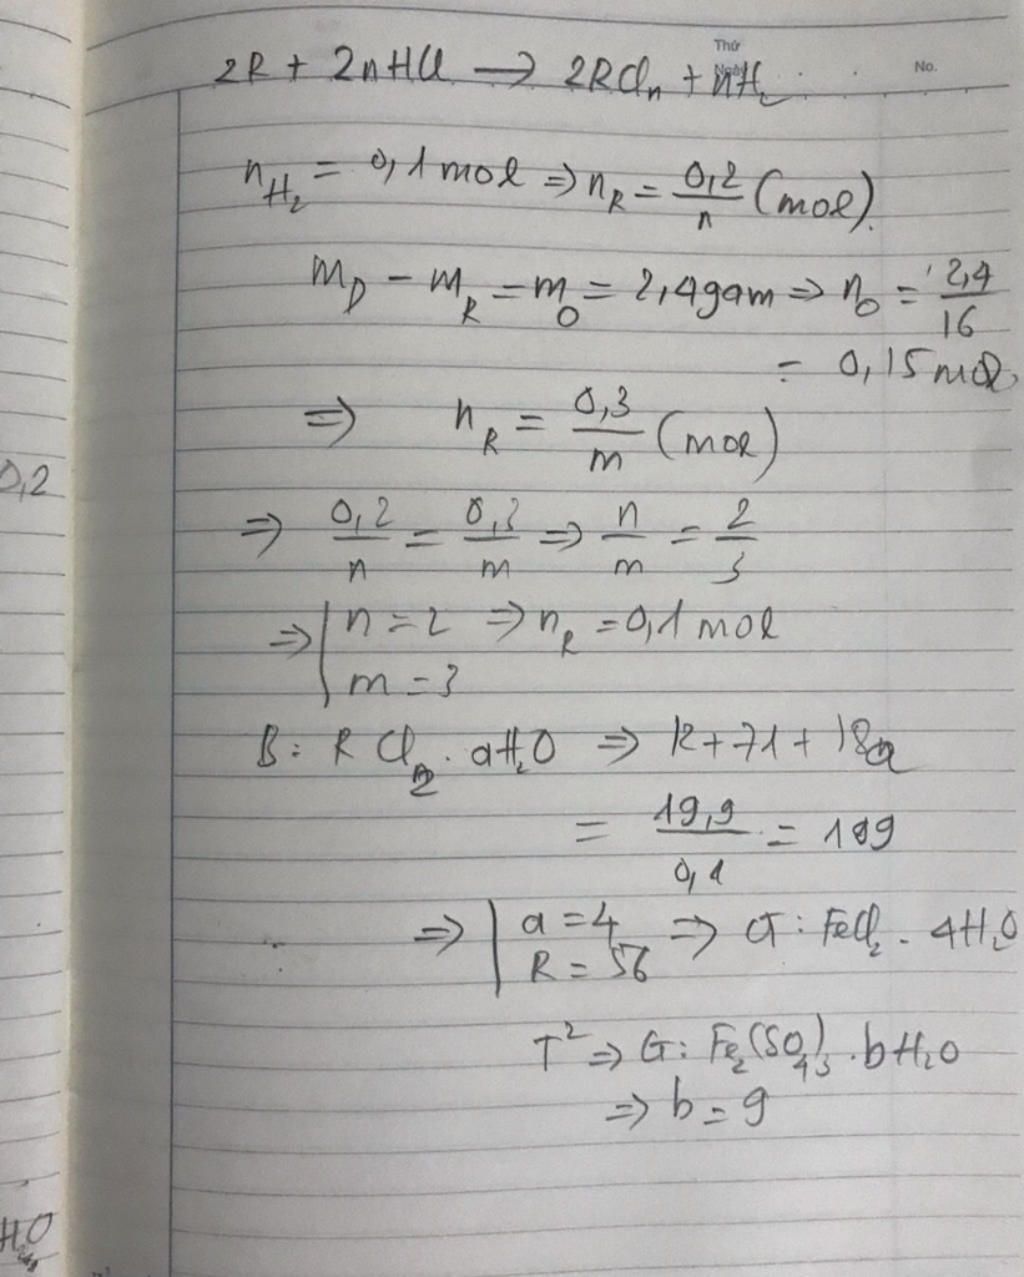 Thứ
Ngày
No.
2R + 2nHCl → 2RClₙ + nH₂
n_H₂ = 0,1 mol ⇒ n_R = 0,2/n (mol).
m_D - m_R = m_O = 2,4 gam ⇒ n_O = 2,4/16
= 0,15 mol
⇒ n_R = 0,3/m (mol)
0,2
⇒ 0,2/n = 0,3/m ⇒ n/m = 2/3
⇒ | n = 2 ⇒ n_R = 0,1 mol
m = 3
B: RCl₂ . aH₂O ⇒ R + 71 + 18a
= 19,9/0,1 = 199
⇒ | a = 4 ⇒ : FeCl₂ . 4H₂O
R = 56
T² ⇒ G: Fe₂(SO₄)₃ . bH₂O
⇒ b = 9
H₂O